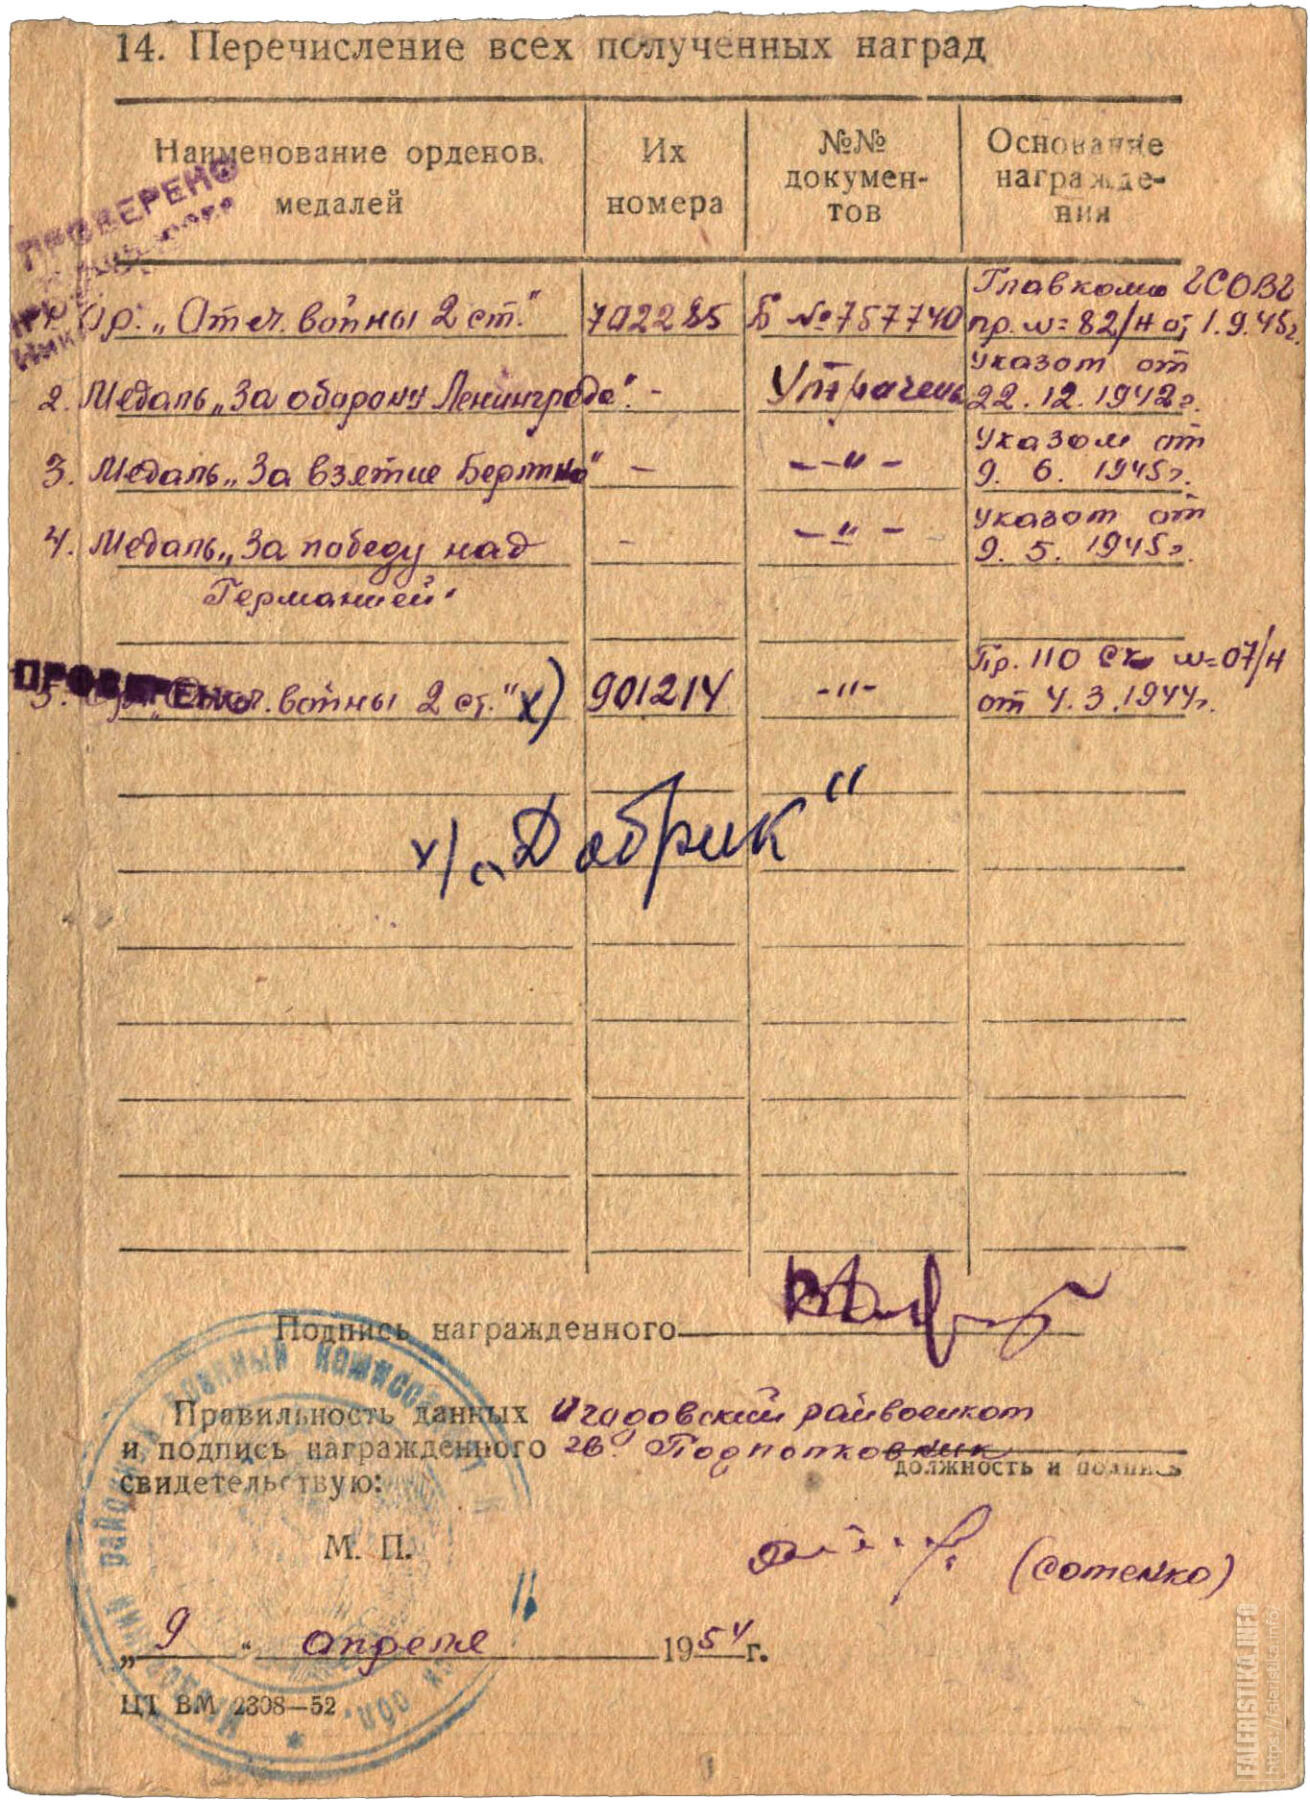 14. Перечисление всех полученных наград
Наименование орденов, медалей
Их номера
№№ докумен-
тов
Основание
награжде-
ния
ПРОВЕРЕНО
1. Ор. „Отеч. войны 2 ст." 702285 Б №757740 Главкома ГСОВГ
пр. №=82/н от 1.9.45г.
2. Медаль „За оборону Ленинграда". - Утрачень Указом от
22.12.1942г.
3. Медаль „За взятие Берлина" - -"- Указом от
9. 6. 1945г.
4. Медаль „За победу над - -"- Указом от
9. 5. 1945г.
Германией"
ПРОВЕРЕНО
5. Ор. „Отеч. войны 2 ст." х) 901214 -"- Пр. 110 Ск №=07/н
от 4.3.1944г.
х) „Добрик"
Подпись награжденного
Правильность данных
и подпись награжденного
свидетельствую:
райвоенком
гв. Подполковник
должность и подпись
М. П.
(Сотенко)
„9" апреля 1954 г.
ЦТ ВМ 2308—52
районный военный комиссариат
обл.
FALERISTIKA.INFO
https://faleristika.info/